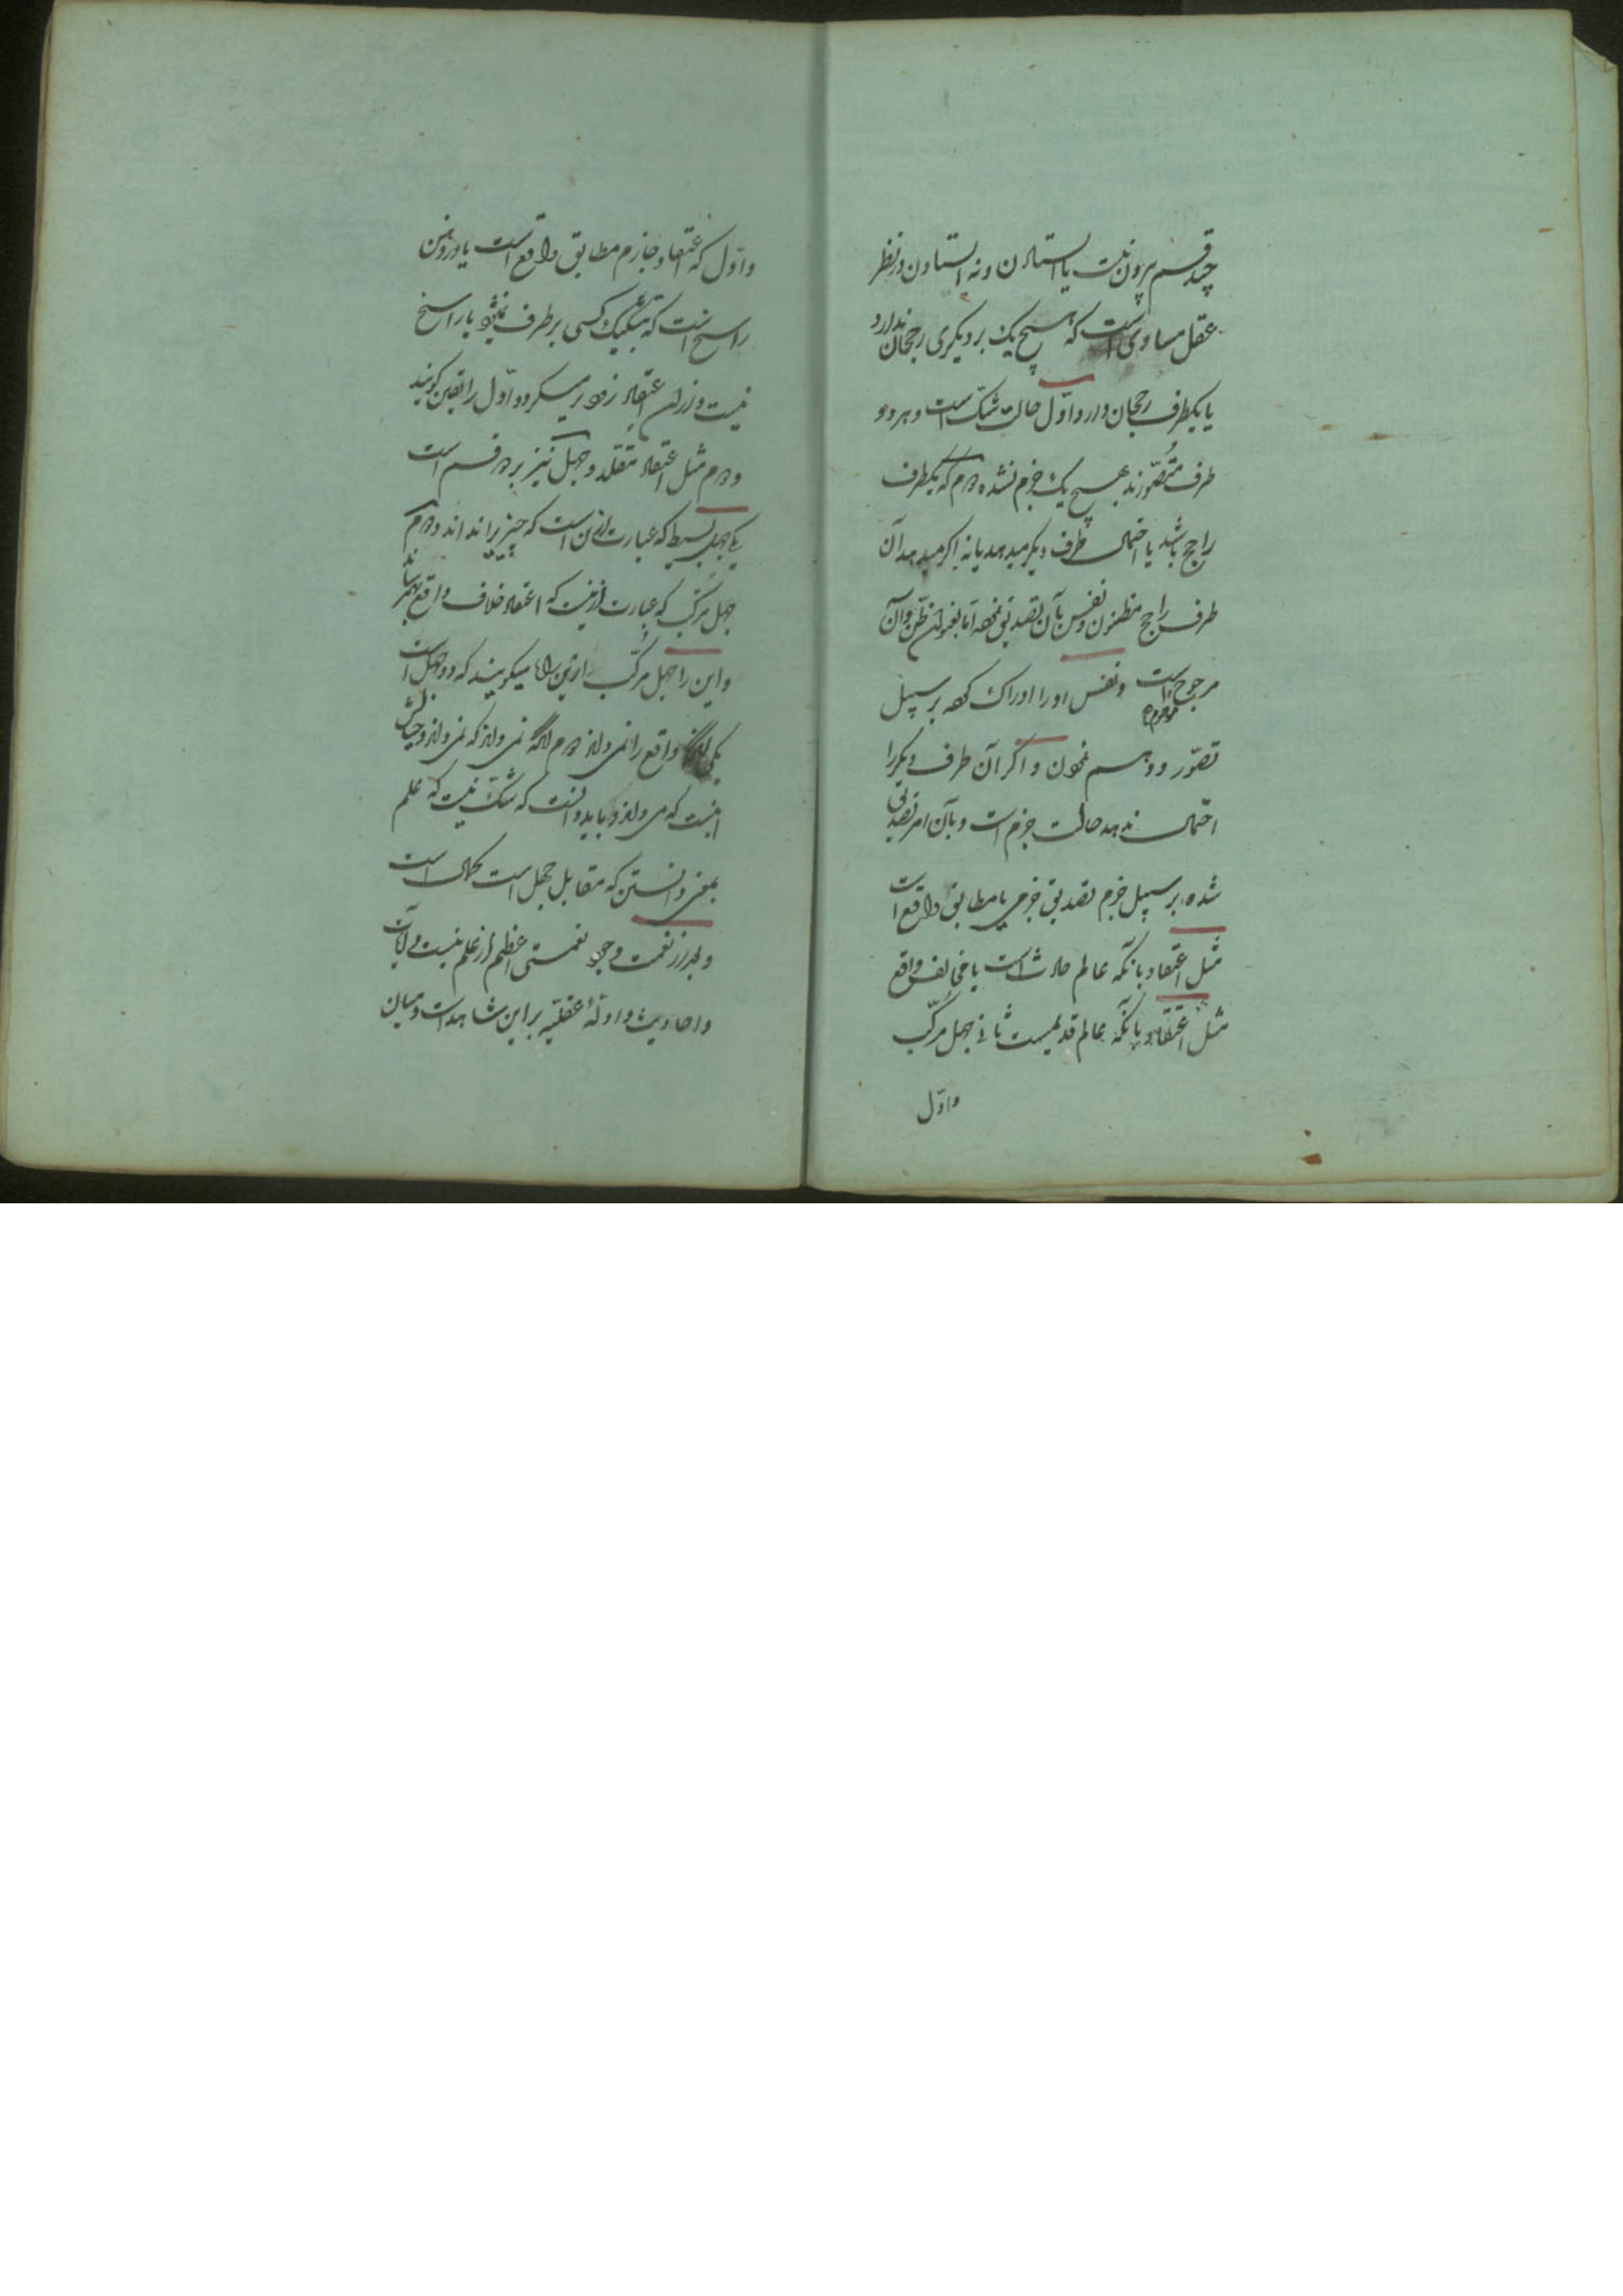 چند قسم بیرون نیست یا استادن و نه استادن در نظر
عقل مساوی است که هیچ یک بر دیگری رجحان ندارد
یا یکطرف رجحان دارد و اوّل حالت شک است و هر دو
طرف متصوّرند بهیچ یک جزم نشده دوم که یکطرف
راجح باشد یا احتمال طرف دیگر میدهد یا نه اگر میدهد آن
طرف راجح مظنون و نفس بآن تصدیق نموده اما بعنوان ظن و آن
مرجوح است موهوم و نفس او را ادراک نموده بر سبیل
تصوّر و وهم نمودن و اگر آن طرف دیگر را
احتمال ندهد حالت جزم است و بآن امر تصدیق
شده بر سبیل جزم تصدیق جزمی یا مطابق واقع است
مثل اعتقاد بآنکه عالم حادث است یا مخالف واقع
مثل اعتقاد بآنکه عالم قدیمست ثانی جهل مرکّب
واوّل
واوّل که اعتقاد جازم مطابق واقع است یا در ذهن
راسخ است که بتشکیک کسی برطرف نمیشود یا راسخ
نیست و از آن اعتقاد زود بر میگردد اوّل را یقین گویند
و دوم مثل اعتقاد مقلد و جهل نیز بر دو قسم است
یکی جهل بسیط که عبارت ازین است که چیزیرا نداند و دوم
جهل مرکّب که عبارت ازینست که اعتقاد خلاف واقع بهم رساند
و این را جهل مرکّب ازین راه میگویند که دو جهل است
یکی آنکه واقع را نمی داند دوم آنکه نمی داند که نمی داند و خیالش
اینست که می داند و باید دانست که شک نیست که علم
بمعنی دانستن که مقابل جهل است کمال است
و بعد از نعمت وجود نعمتی اعظم از علم نیست و آیات
و احادیث و ادلّهٔ عقلیّه بر این شاهد است و میان